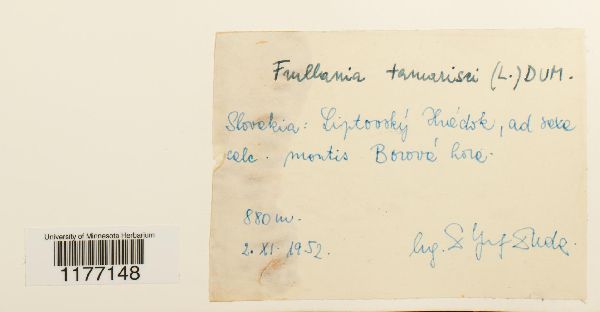 Frullania tamarisci (L.) DUM.
Slovakia: Liptovský Hrádok, ad saxa
calc. montis Borová hora.
880 m.
2. XI. 1952.
leg.
University of Minnesota Herbarium
1177148